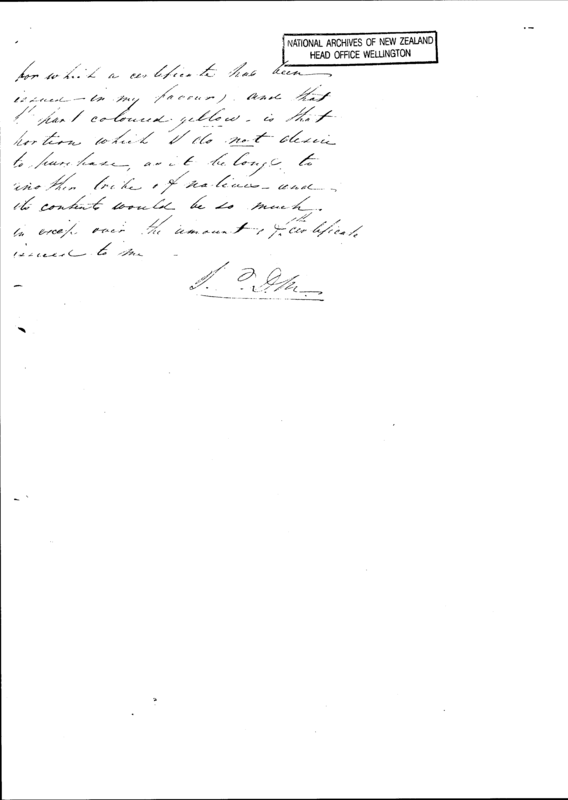 NATIONAL ARCHIVES OF NEW ZEALAND
HEAD OFFICE WELLINGTON
for which a certificate has been
issued in my favour, and that
part coloured yellow is that
portion which I do not desire
to purchase, as it belongs to
another tribe of natives and
its contents would be so much
in over the amount of the certificate
issued to me